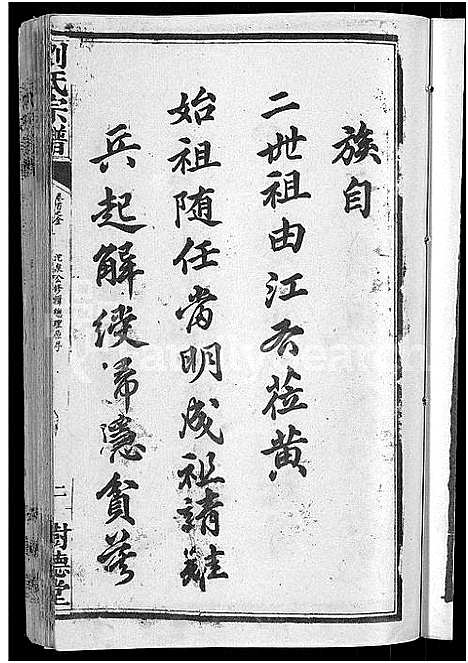 族自
二世祖由江右蒞黃
始祖随任當明成祖靖難
兵起解綬歸隱貧苦
刘氏宗譜
卷首之全
汜泉公修譜總理原序
二
樹德堂